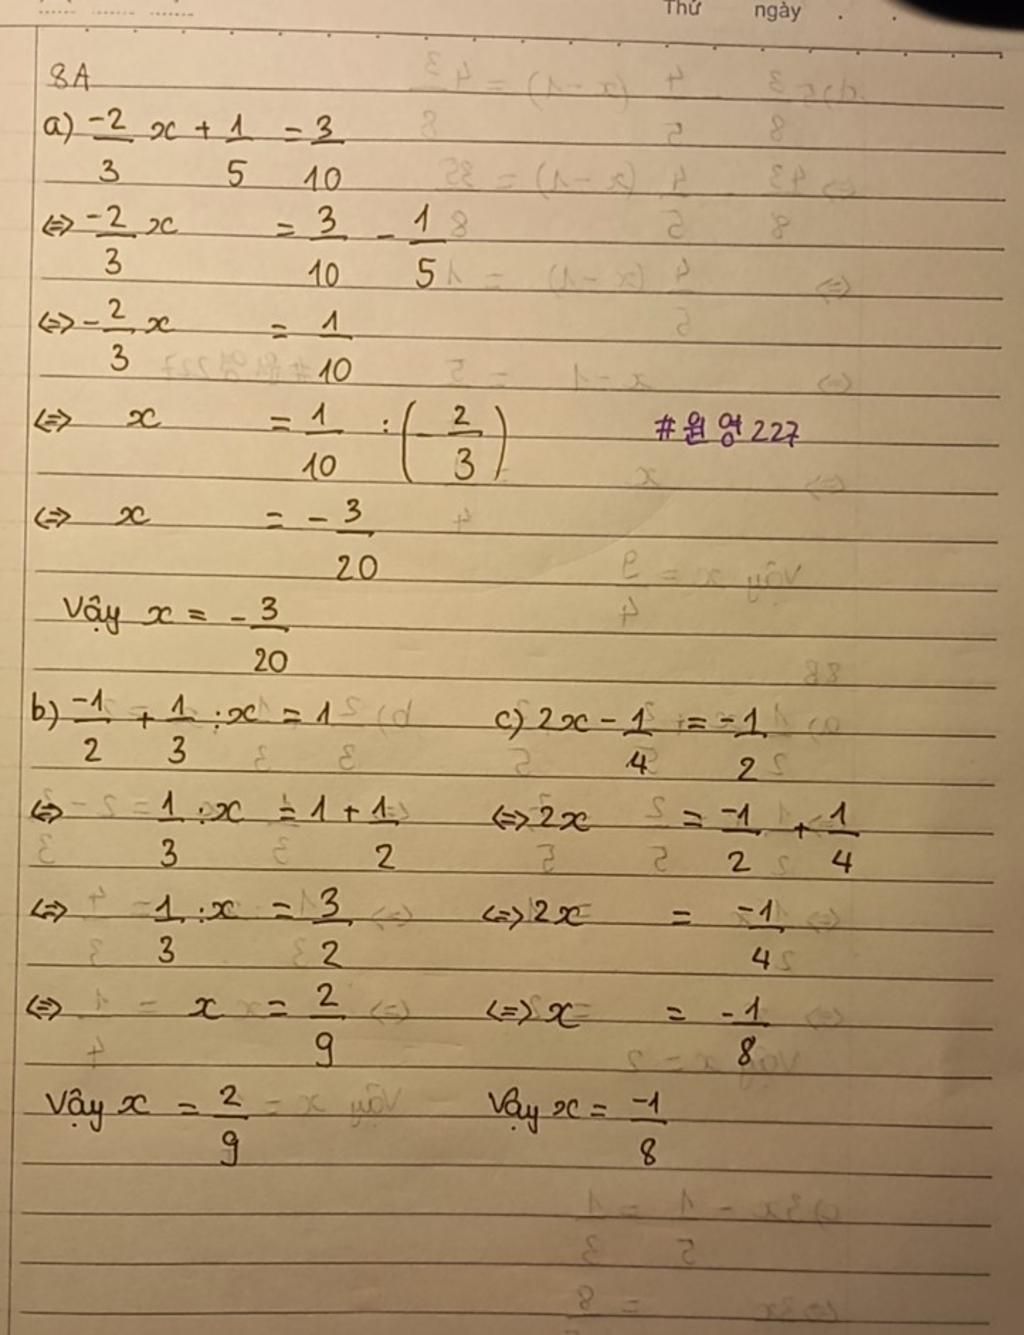 Thứ ngày
8A
a) -2/3 x + 1/5 = 3/10
⇔ -2/3 x = 3/10 - 1/5
⇔ -2/3 x = 1/10
⇔ x = 1/10 : (-2/3)
#원영227
⇔ x = -3/20
Vậy x = -3/20
b) -1/2 + 1/3 : x = 1
⇔ 1/3 : x = 1 + 1/2
⇔ 1/3 : x = 3/2
⇔ x = 2/9
Vậy x = 2/9
c) 2x - 1/4 = -1/2
⇔ 2x = -1/2 + 1/4
⇔ 2x = -1/4
⇔ x = -1/8
Vậy x = -1/8